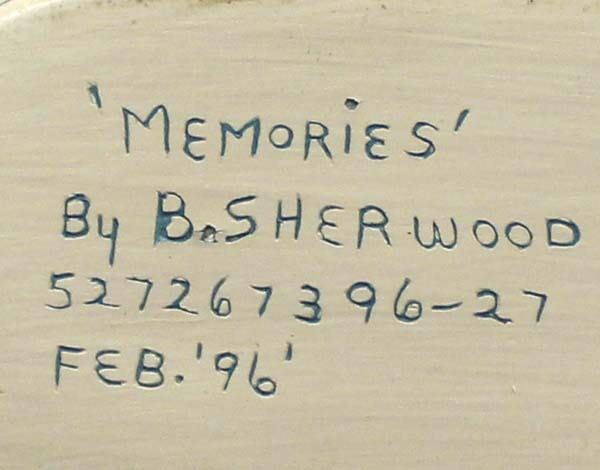 'MEMORiES'
By B. SHERWOOD
527267396-27
FEB. '96'